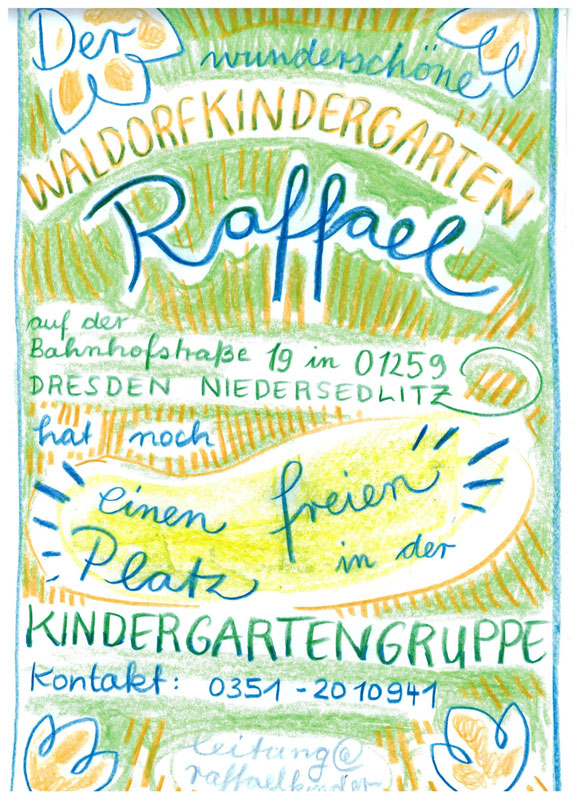 Der
wunderschöne
WALDORFKINDERGARTEN
Raffael
auf der
Bahnhofstraße 19 in 01259
DRESDEN NIEDERSEDLITZ
hat noch
einen freien
Platz in der
KINDERGARTENGRUPPE
Kontakt: 0351-2010941
leitung@
raffaelkinder